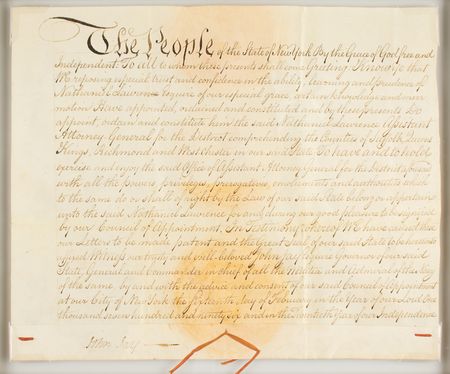 The People of the State of New York By the Grace of God free and
Independent: To all to whom these presents shall come Greeting Know ye that
We reposing especial trust and confidence in the ability, learning and prudence of
Nathaniel Lawrence Esquire of our special grace certain knowledge and mere
motion Have appointed, ordained and constituted and by these presents Do
appoint, ordain and constitute him the said Nathaniel Lawrence Assistant
Attorney General for the District comprehending the Counties of Suffolk Queens
Kings, Richmond and West Chester in our said State To have and to hold
exercise and enjoy the said Office of Assistant Attorney general for the District aforesaid
with all the powers privileges, prerogatives, emoluments and authorities which
to the same do or shall of right by the Law of our said State belong or appertain
unto the said Nathaniel Lawrence for and during our good pleasure to be signified
by our Council of Appointment. In Testimony whereof We have caused these
our Letters to be made patent and the Great Seal of our said State to be hereunto
affixed Witness our trusty and well-beloved John Jay Esquire Governor of our said
State, General and Commander in chief of all the Militia and Admiral of the Navy
of the same, by and with the advice and consent of our said Council of Appointment
at our City of New York the fifteenth day of February in the Year of our Lord One
thousand seven hundred and ninety six and in the twentieth Year of our Independence.
John Jay